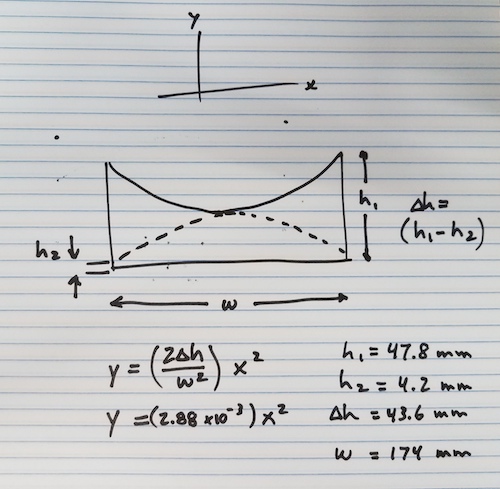 y
x
h₁
Δh =
(h₁ - h₂)
h₂
w
y = (2Δh / w²) x²
y = (2.88 x10⁻³) x²
h₁ = 47.8 mm
h₂ = 4.2 mm
Δh = 43.6 mm
w = 174 mm